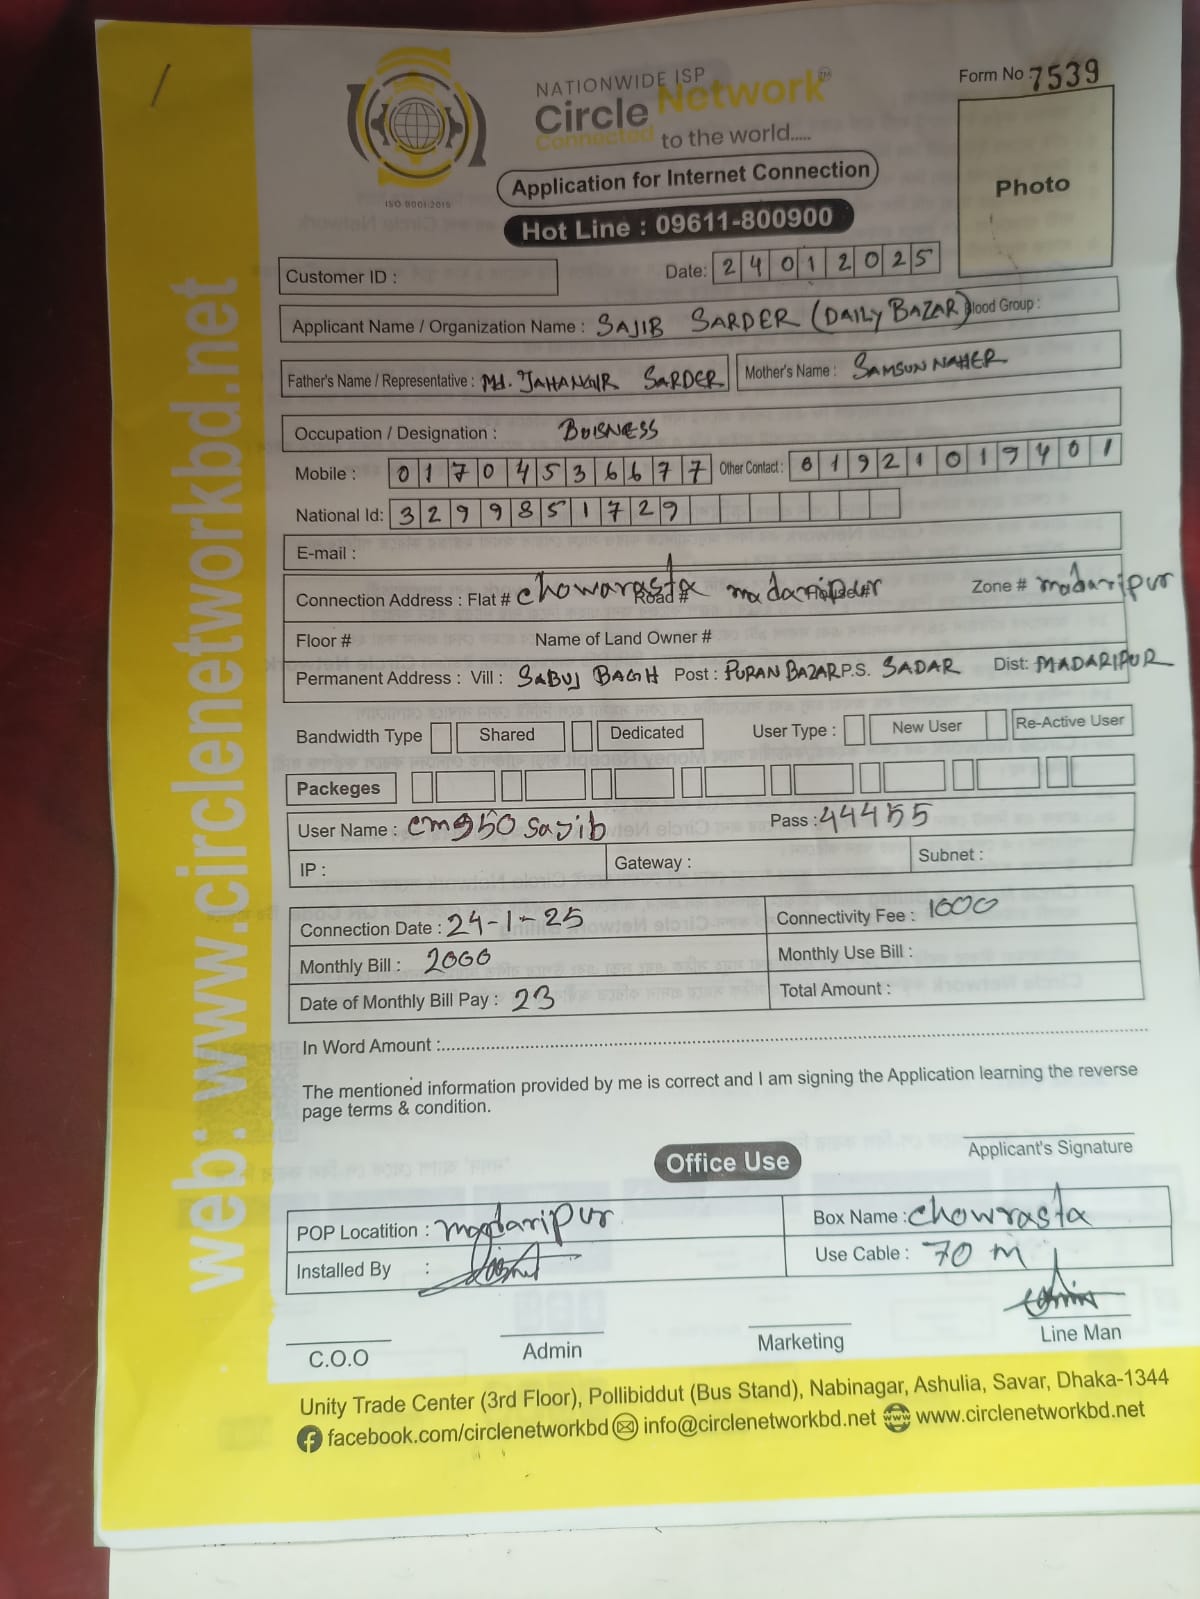 NATIONWIDE ISP
Circle Network™
Connected to the world.....
ISO 9001:2015
Form No 7539
Photo
Application for Internet Connection
Hot Line : 09611-800900
Customer ID :
Date: 24012025
Applicant Name / Organization Name : SAJIB SARDER (DAILY BAZAR) Blood Group :
Father's Name / Representative : Md. JAHANGIR SARDER Mother's Name : SAMSUN NAHER
Occupation / Designation : BUISNESS
Mobile : 01704536677 Other Contact : 01921019401
National Id: 3299851729
E-mail :
Connection Address : Flat # chowarasta Road # madaripur House # Zone # madaripur
Floor # Name of Land Owner #
Permanent Address : Vill : SABUJ BAGH Post : PURAN BAZAR P.S. SADAR Dist: MADARIPUR
Bandwidth Type Shared Dedicated User Type : New User Re-Active User
Packeges
User Name : cmg50 sajib Pass : 44455
IP : Gateway : Subnet :
Connection Date : 24-1-25 Connectivity Fee : 1000
Monthly Bill : 2000 Monthly Use Bill :
Date of Monthly Bill Pay : 23 Total Amount :
In Word Amount :
The mentioned information provided by me is correct and I am signing the Application learning the reverse
page terms & condition.
Applicant's Signature
Office Use
POP Locatition : madaripur Box Name : chowrasta
Installed By : Use Cable : 70 m
C.O.O Admin Marketing Line Man
Unity Trade Center (3rd Floor), Pollibiddut (Bus Stand), Nabinagar, Ashulia, Savar, Dhaka-1344
facebook.com/circlenetworkbd info@circlenetworkbd.net www.circlenetworkbd.net
web: www.circlenetworkbd.net